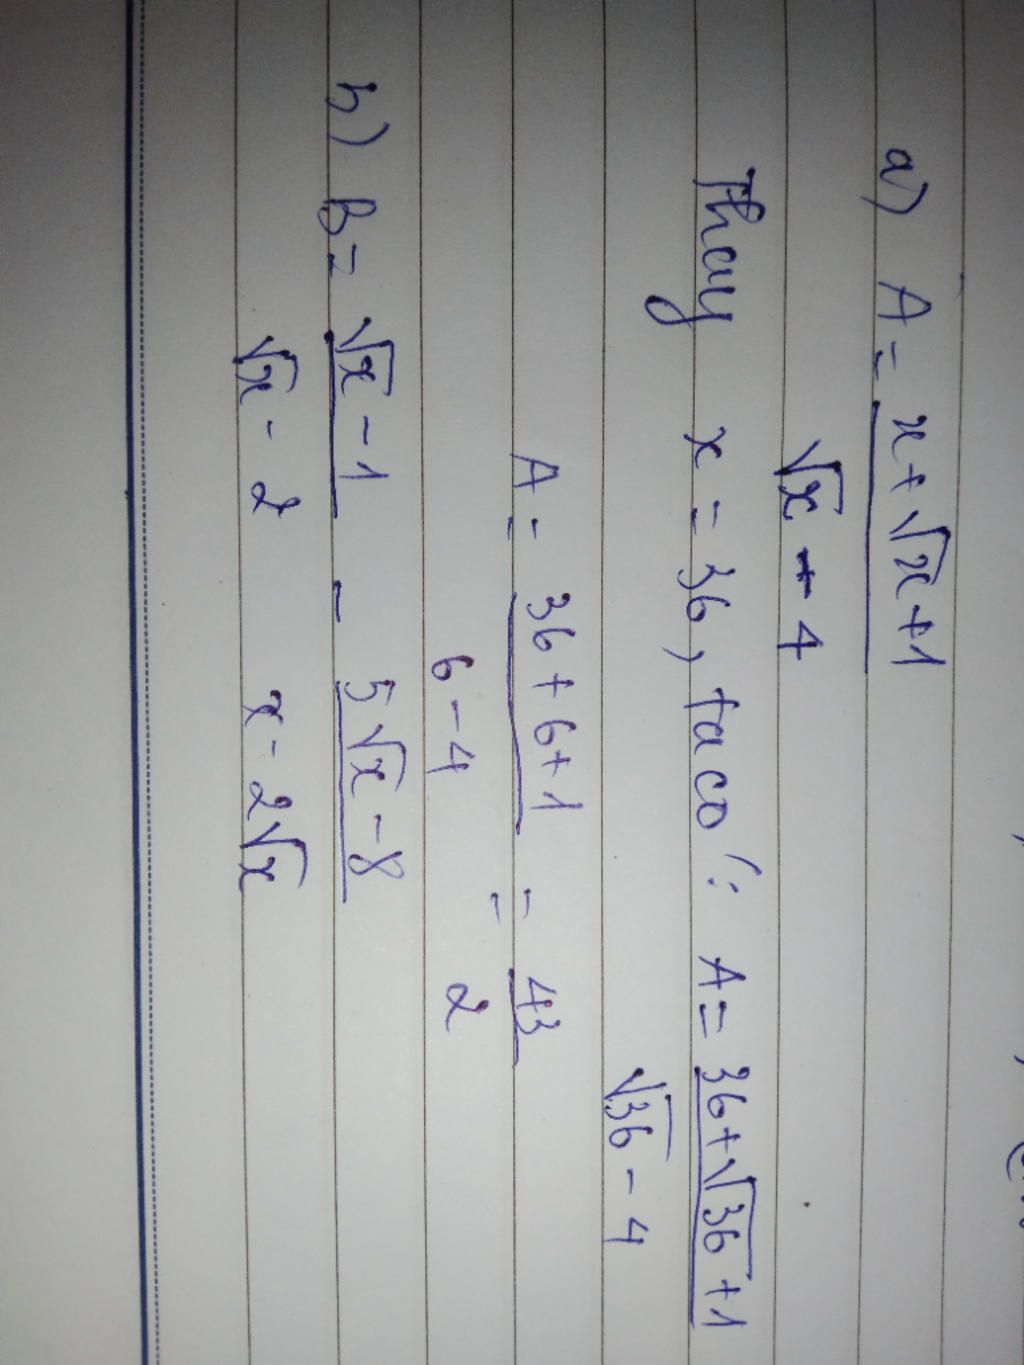 a) A = x + √x + 1
√x - 4
Thay x = 36, ta có: A = 36 + √36 + 1
√36 - 4
A = 36 + 6 + 1 = 43
6 - 4 2
b) B = √x - 1 - 5√x - 8
√x - 2 x - 2√x